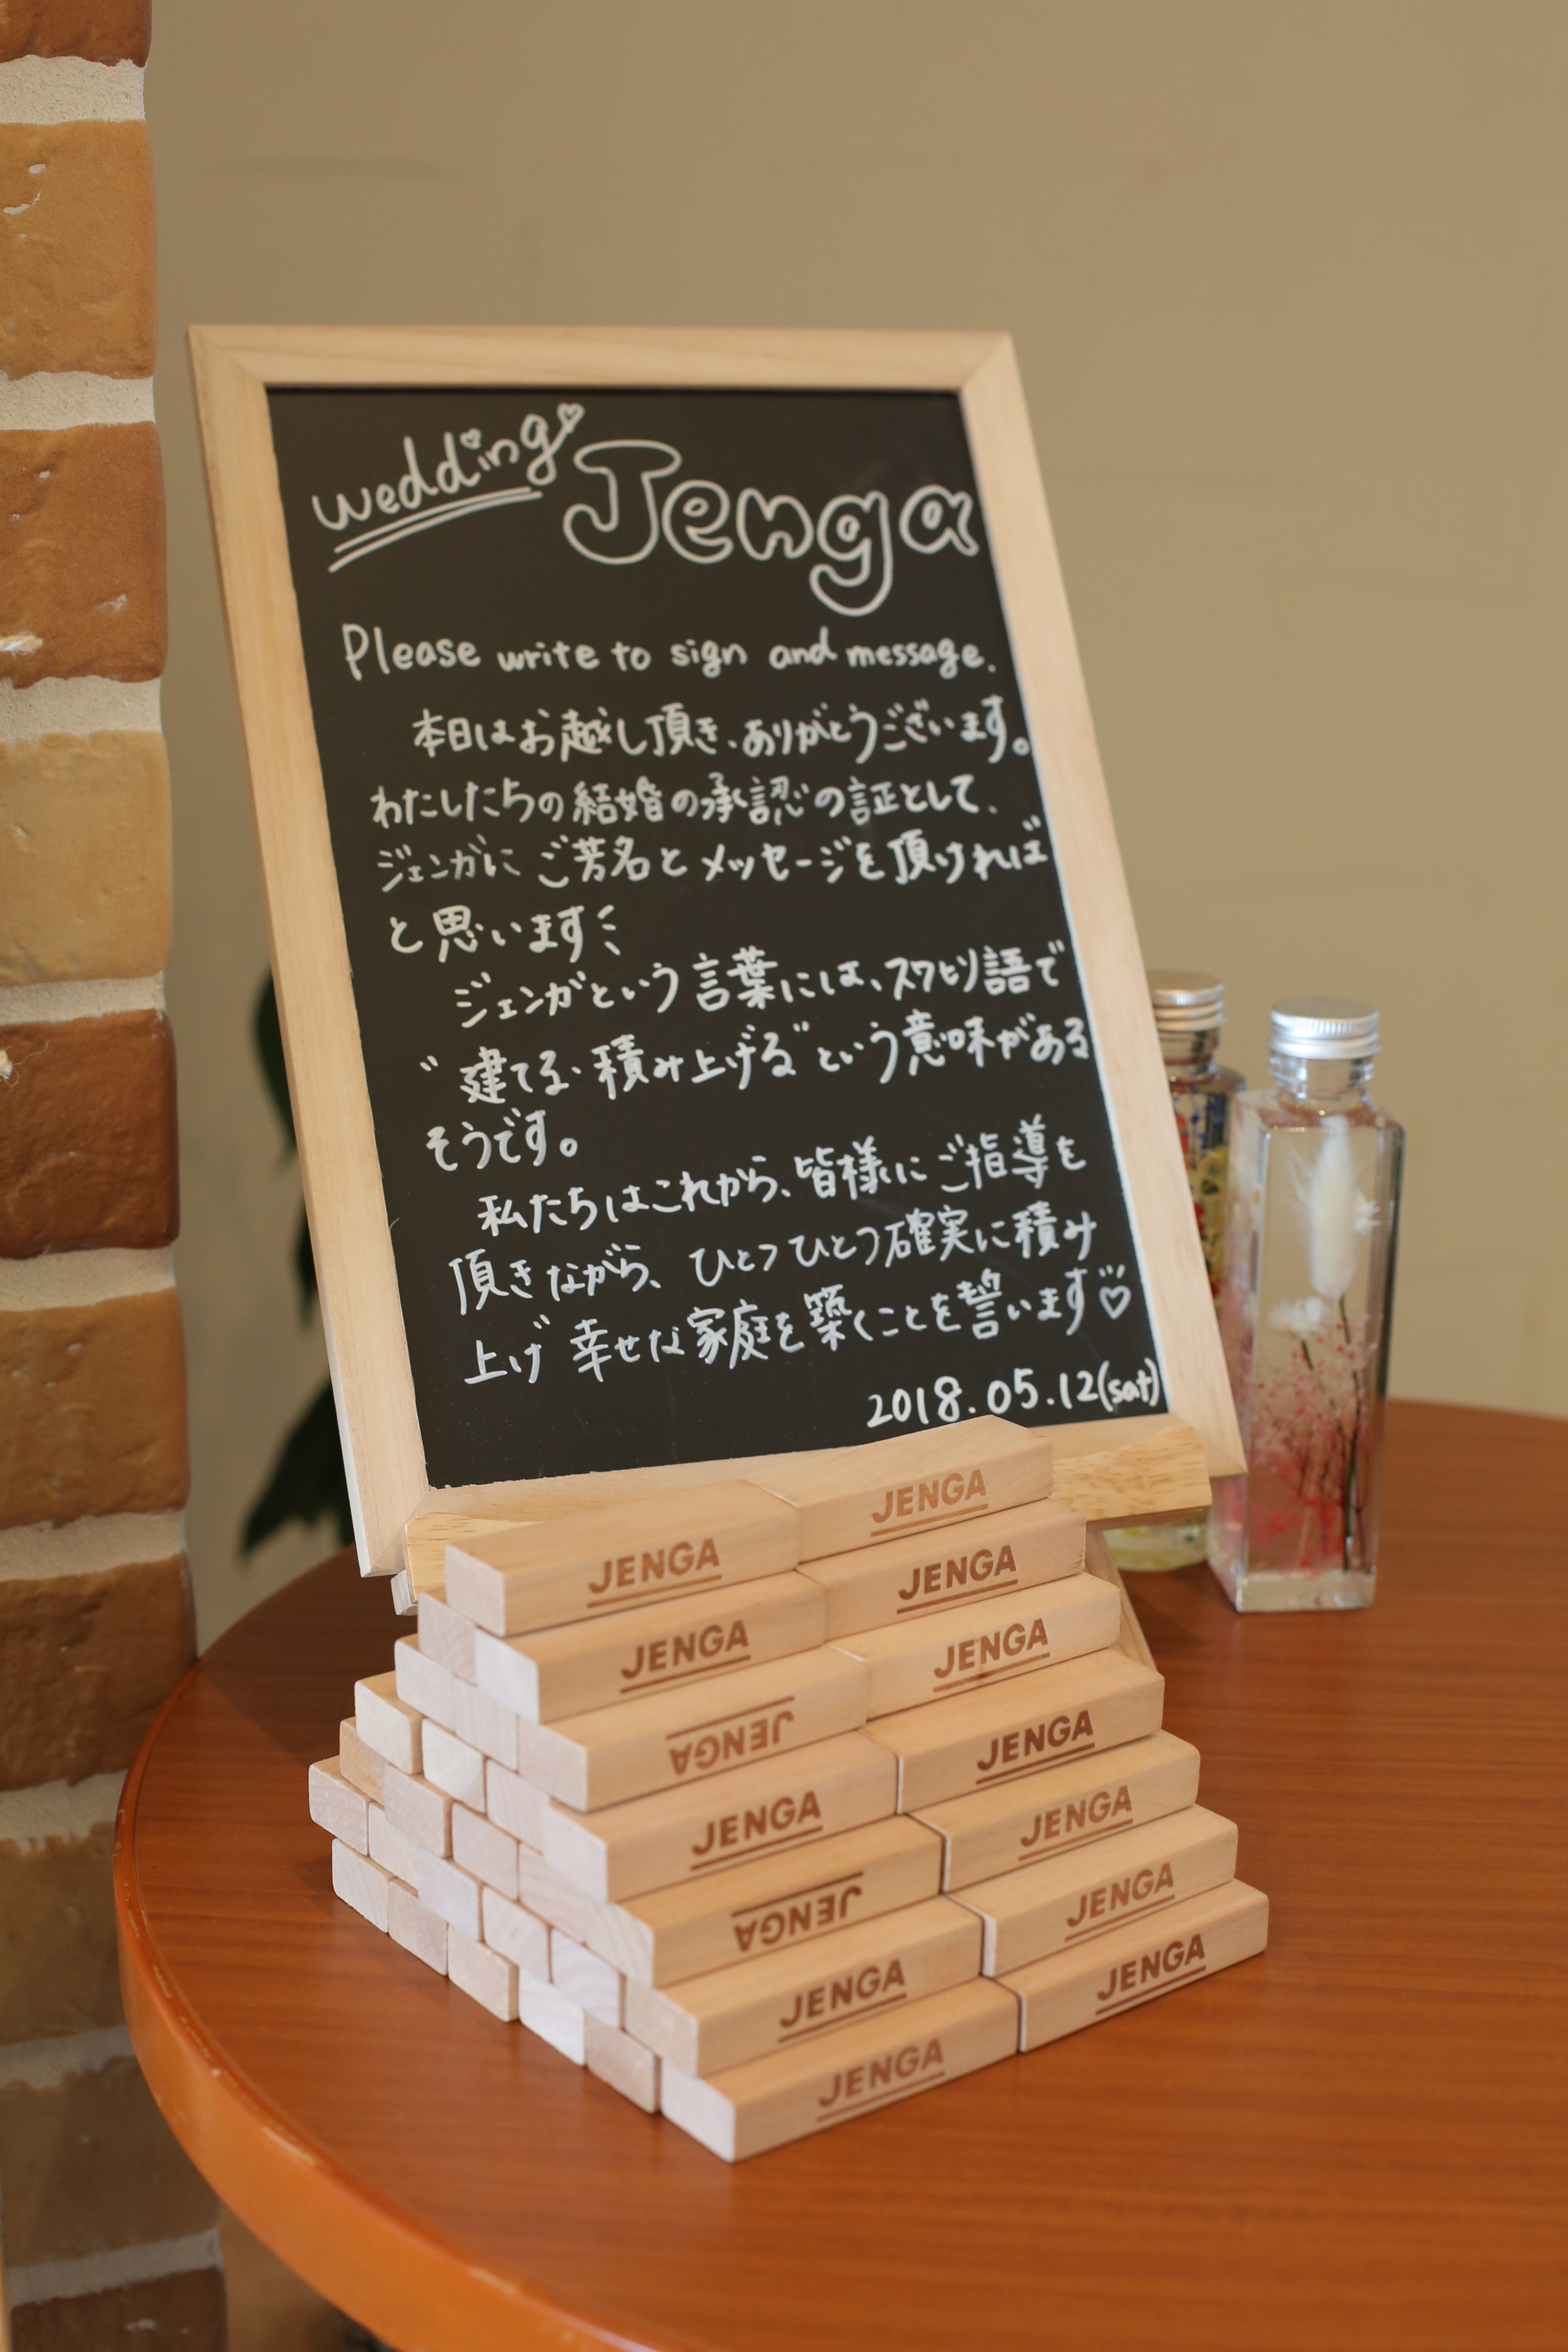 wedding Jenga
Please write to sign and message.
本日はお越し頂き、ありがとうございます。
わたしたちの結婚の承認の証として、
ジェンガに ご芳名と メッセージを頂ければ
と思います
ジェンガという言葉には、スワヒリ語で
"建てる・積み上げる"という意味がある
そうです。
私たちはこれから、皆様にご指導を
頂きながら、ひとつひとつ確実に積み
上げ 幸せな家庭を築くことを誓います♡
2018.05.12(sat)
JENGA
JENGA
JENGA
JENGA
JENGA
JENGA
JENGA
JENGA
JENGA
JENGA
JENGA
JENGA
JENGA
JENGA